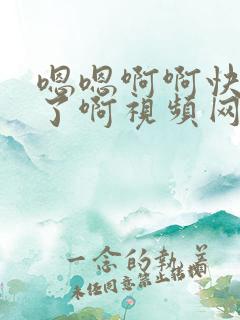 嗯嗯啊啊快
了啊視頻网
一念的執着
未经同意禁止转载